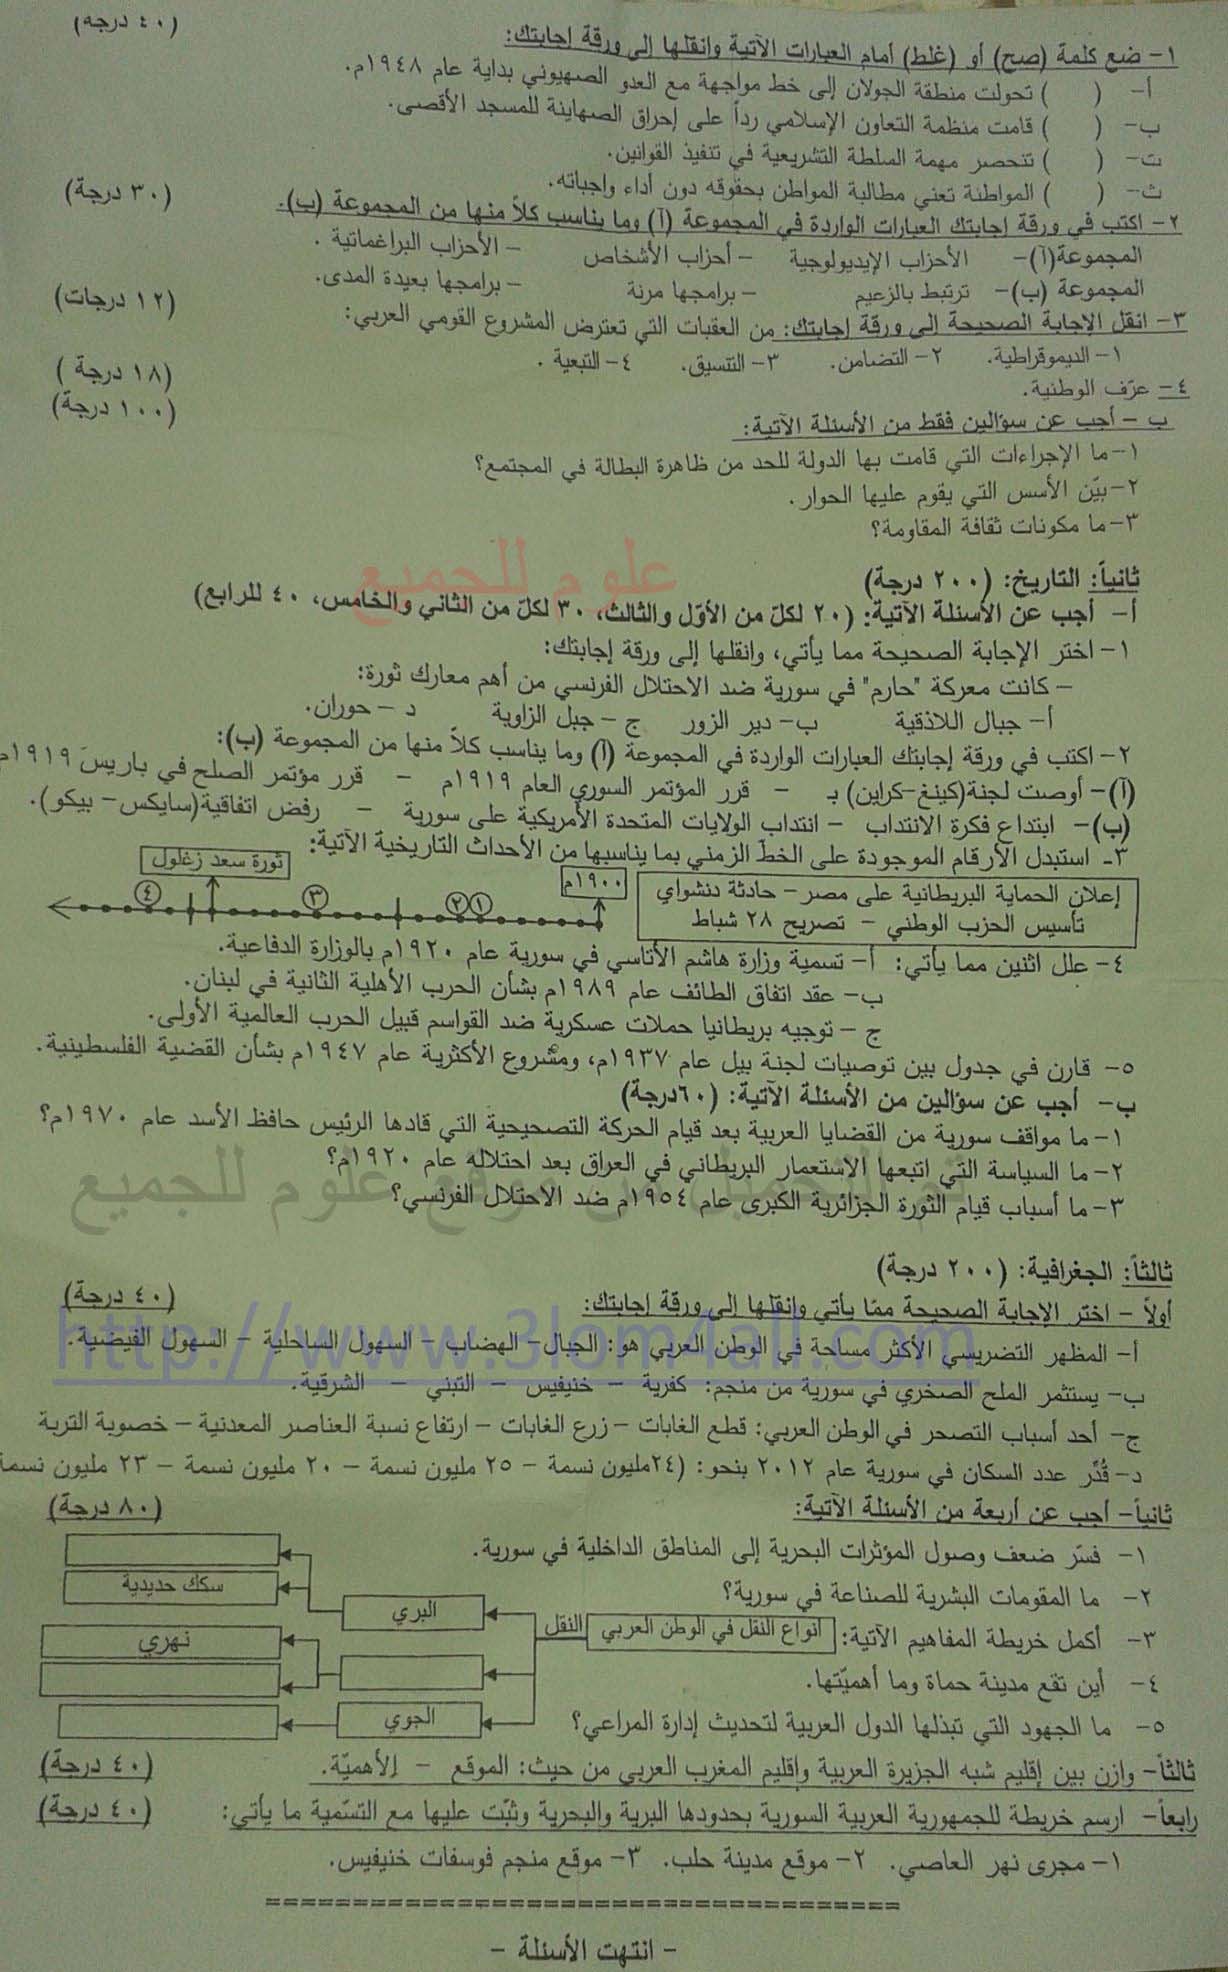 (٤٠ درجة)
١- ضع كلمة (صح) أو (غلط) أمام العبارات الآتية وانقلها إلى ورقة إجابتك:
أ- (    ) تحولت منطقة الجولان إلى خط مواجهة مع العدو الصهيوني بداية عام ١٩٤٨م.
ب- (    ) قامت منظمة التعاون الإسلامي رداً على إحراق الصهاينة للمسجد الأقصى.
ت- (    ) تنحصر مهمة السلطة التشريعية في تنفيذ القوانين.
ث- (    ) المواطنة تعني مطالبة المواطن بحقوقه دون أداء واجباته.
٢- اكتب في ورقة إجابتك العبارات الواردة في المجموعة (آ) وما يناسب كلاً منها من المجموعة (ب). (٣٠ درجة)
المجموعة (آ)- الأحزاب الإيديولوجية - أحزاب الأشخاص - الأحزاب البراغماتية .
المجموعة (ب)- ترتبط بالزعيم - برامجها مرنة - برامجها بعيدة المدى.
٣- انقل الإجابة الصحيحة إلى ورقة إجابتك: من العقبات التي تعترض المشروع القومي العربي: (١٢ درجات)
١- الديموقراطية. ٢- التضامن. ٣- التنسيق. ٤- التبعية .
٤- عرّف الوطنية. (١٨ درجة)
ب - أجب عن سؤالين فقط من الأسئلة الآتية: (١٠٠ درجة)
١- ما الإجراءات التي قامت بها الدولة للحد من ظاهرة البطالة في المجتمع؟
٢- بيّن الأسس التي يقوم عليها الحوار.
٣- ما مكونات ثقافة المقاومة؟
علوم للجميع
ثانياً: التاريخ: (٢٠٠ درجة)
أ- أجب عن الأسئلة الآتية: (٢٠ لكلّ من الأوّل والثالث، ٣٠ لكلّ من الثاني والخامس، ٤٠ للرابع)
١- اختر الإجابة الصحيحة مما يأتي، وانقلها إلى ورقة إجابتك:
- كانت معركة "حارم" في سورية ضد الاحتلال الفرنسي من أهم معارك ثورة:
أ- جبال اللاذقية ب- دير الزور ج- جبل الزاوية د- حوران.
٢- اكتب في ورقة إجابتك العبارات الواردة في المجموعة (آ) وما يناسب كلاً منها من المجموعة (ب):
(آ)- أوصت لجنة(كينغ-كراين) بـ - قرر المؤتمر السوري العام ١٩١٩م - قرر مؤتمر الصلح في باريس ١٩١٩م
(ب)- ابتداع فكرة الانتداب - انتداب الولايات المتحدة الأمريكية على سورية - رفض اتفاقية(سايكس- بيكو).
٣- استبدل الأرقام الموجودة على الخطّ الزمني بما يناسبها من الأحداث التاريخية الآتية:
إعلان الحماية البريطانية على مصر- حادثة دنشواي
تأسيس الحزب الوطني - تصريح ٢٨ شباط
١٩٠٠م
ثورة سعد زغلول
١ ٢ ٣ ٤
٤- علل اثنين مما يأتي: أ- تسمية وزارة هاشم الأتاسي في سورية عام ١٩٢٠م بالوزارة الدفاعية.
ب- عقد اتفاق الطائف عام ١٩٨٩م بشأن الحرب الأهلية الثانية في لبنان.
ج - توجيه بريطانيا حملات عسكرية ضد القواسم قبيل الحرب العالمية الأولى.
٥- قارن في جدول بين توصيات لجنة بيل عام ١٩٣٧م، ومشروع الأكثرية عام ١٩٤٧م بشأن القضية الفلسطينية.
ب- أجب عن سؤالين من الأسئلة الآتية: (٦٠درجة)
١- ما مواقف سورية من القضايا العربية بعد قيام الحركة التصحيحية التي قادها الرئيس حافظ الأسد عام ١٩٧٠م؟
٢- ما السياسة التي اتبعها الاستعمار البريطاني في العراق بعد احتلاله عام ١٩٢٠م؟
تم التحميل من موقع علوم للجميع
٣- ما أسباب قيام الثورة الجزائرية الكبرى عام ١٩٥٤م ضد الاحتلال الفرنسي؟
ثالثاً: الجغرافية: (٢٠٠ درجة)
أولاً - اختر الإجابة الصحيحة ممّا يأتي وانقلها إلى ورقة إجابتك: (٤٠ درجة)
http://www.3lom4all.com
أ- المظهر التضريسي الأكثر مساحة في الوطن العربي هو: الجبال- الهضاب - السهول الساحلية - السهول الفيضية.
ب- يستثمر الملح الصخري في سورية من منجم: كفرية - خنيفيس - التبني - الشرقية.
ج- أحد أسباب التصحر في الوطن العربي: قطع الغابات - زرع الغابات - ارتفاع نسبة العناصر المعدنية - خصوبة التربة
د- قُدِّر عدد السكان في سورية عام ٢٠١٢ بنحو: (٢٤مليون نسمة - ٢٥ مليون نسمة - ٢٠ مليون نسمة - ٢٣ مليون نسمة
ثانياً- أجب عن أربعة من الأسئلة الآتية: (٨٠ درجة)
١- فسّر ضعف وصول المؤثرات البحرية إلى المناطق الداخلية في سورية.
٢- ما المقومات البشرية للصناعة في سورية؟
٣- أكمل خريطة المفاهيم الآتية:
أنواع النقل في الوطن العربي
النقل
البري
سكك حديدية
نهري
الجوي
٤- أين تقع مدينة حماة وما أهميّتها.
٥- ما الجهود التي تبذلها الدول العربية لتحديث إدارة المراعي؟
ثالثاً- وازن بين إقليم شبه الجزيرة العربية وإقليم المغرب العربي من حيث: الموقع - الأهميّة. (٤٠ درجة)
رابعاً- ارسم خريطة للجمهورية العربية السورية بحدودها البرية والبحرية وثبّت عليها مع التسّمية ما يأتي: (٤٠ درجة)
١- مجرى نهر العاصي. ٢- موقع مدينة حلب. ٣- موقع منجم فوسفات خنيفيس.
====================================
- انتهت الأسئلة -